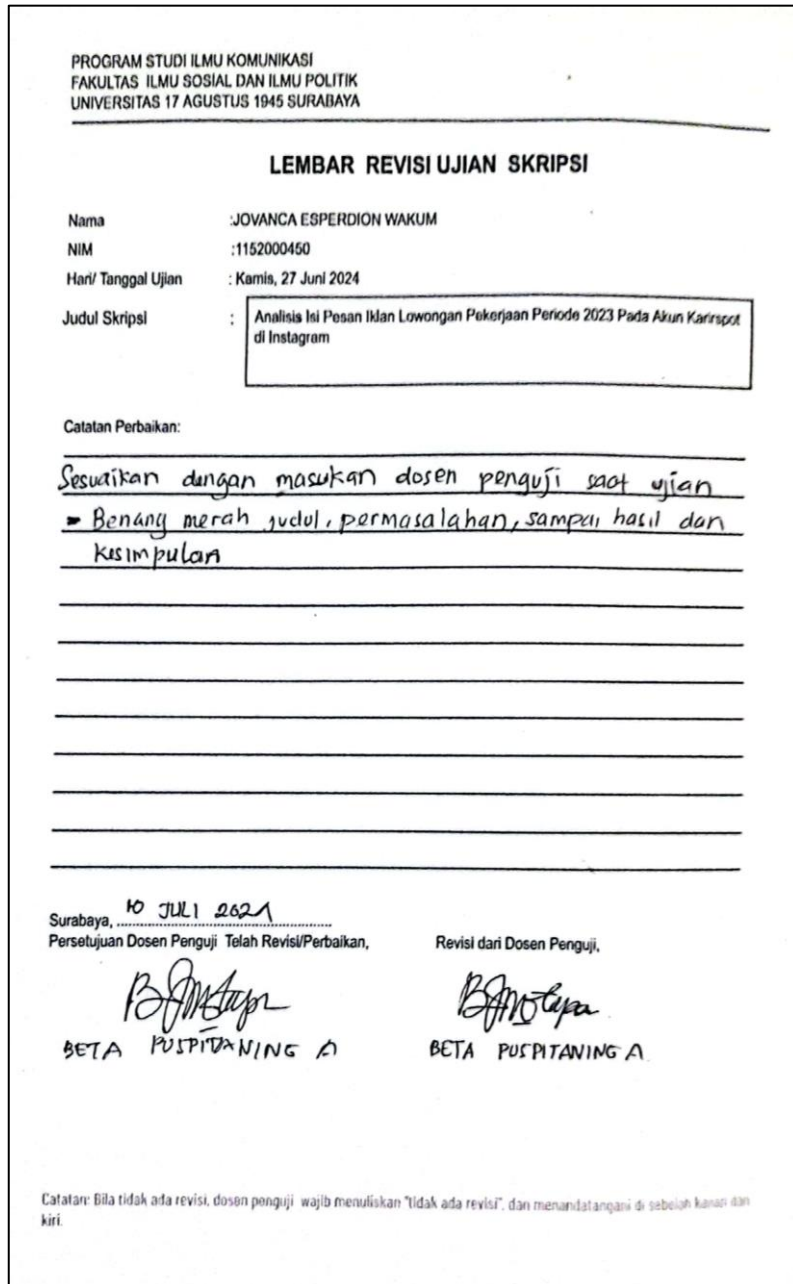 PROGRAM STUDI ILMU KOMUNIKASI
FAKULTAS ILMU SOSIAL DAN ILMU POLITIK
UNIVERSITAS 17 AGUSTUS 1945 SURABAYA
LEMBAR REVISI UJIAN SKRIPSI
Nama :JOVANCA ESPERDION WAKUM
NIM :1152000450
Hari/ Tanggal Ujian : Kamis, 27 Juni 2024
Judul Skripsi : Analisis Isi Pesan Iklan Lowongan Pekerjaan Periode 2023 Pada Akun Karirspot
di Instagram
Catatan Perbaikan:
Sesuaikan dengan masukan dosen penguji saat ujian
- Benang merah judul, permasalahan, sampai hasil dan
kesimpulan
Surabaya, 10 JULI 2024
Persetujuan Dosen Penguji Telah Revisi/Perbaikan, Revisi dari Dosen Penguji,
BETA PUSPITANING A BETA PUSPITANING A
Catatan: Bila tidak ada revisi, dosen penguji wajib menuliskan "tidak ada revisi", dan menandatangani di sebelah kanan dan
kiri.